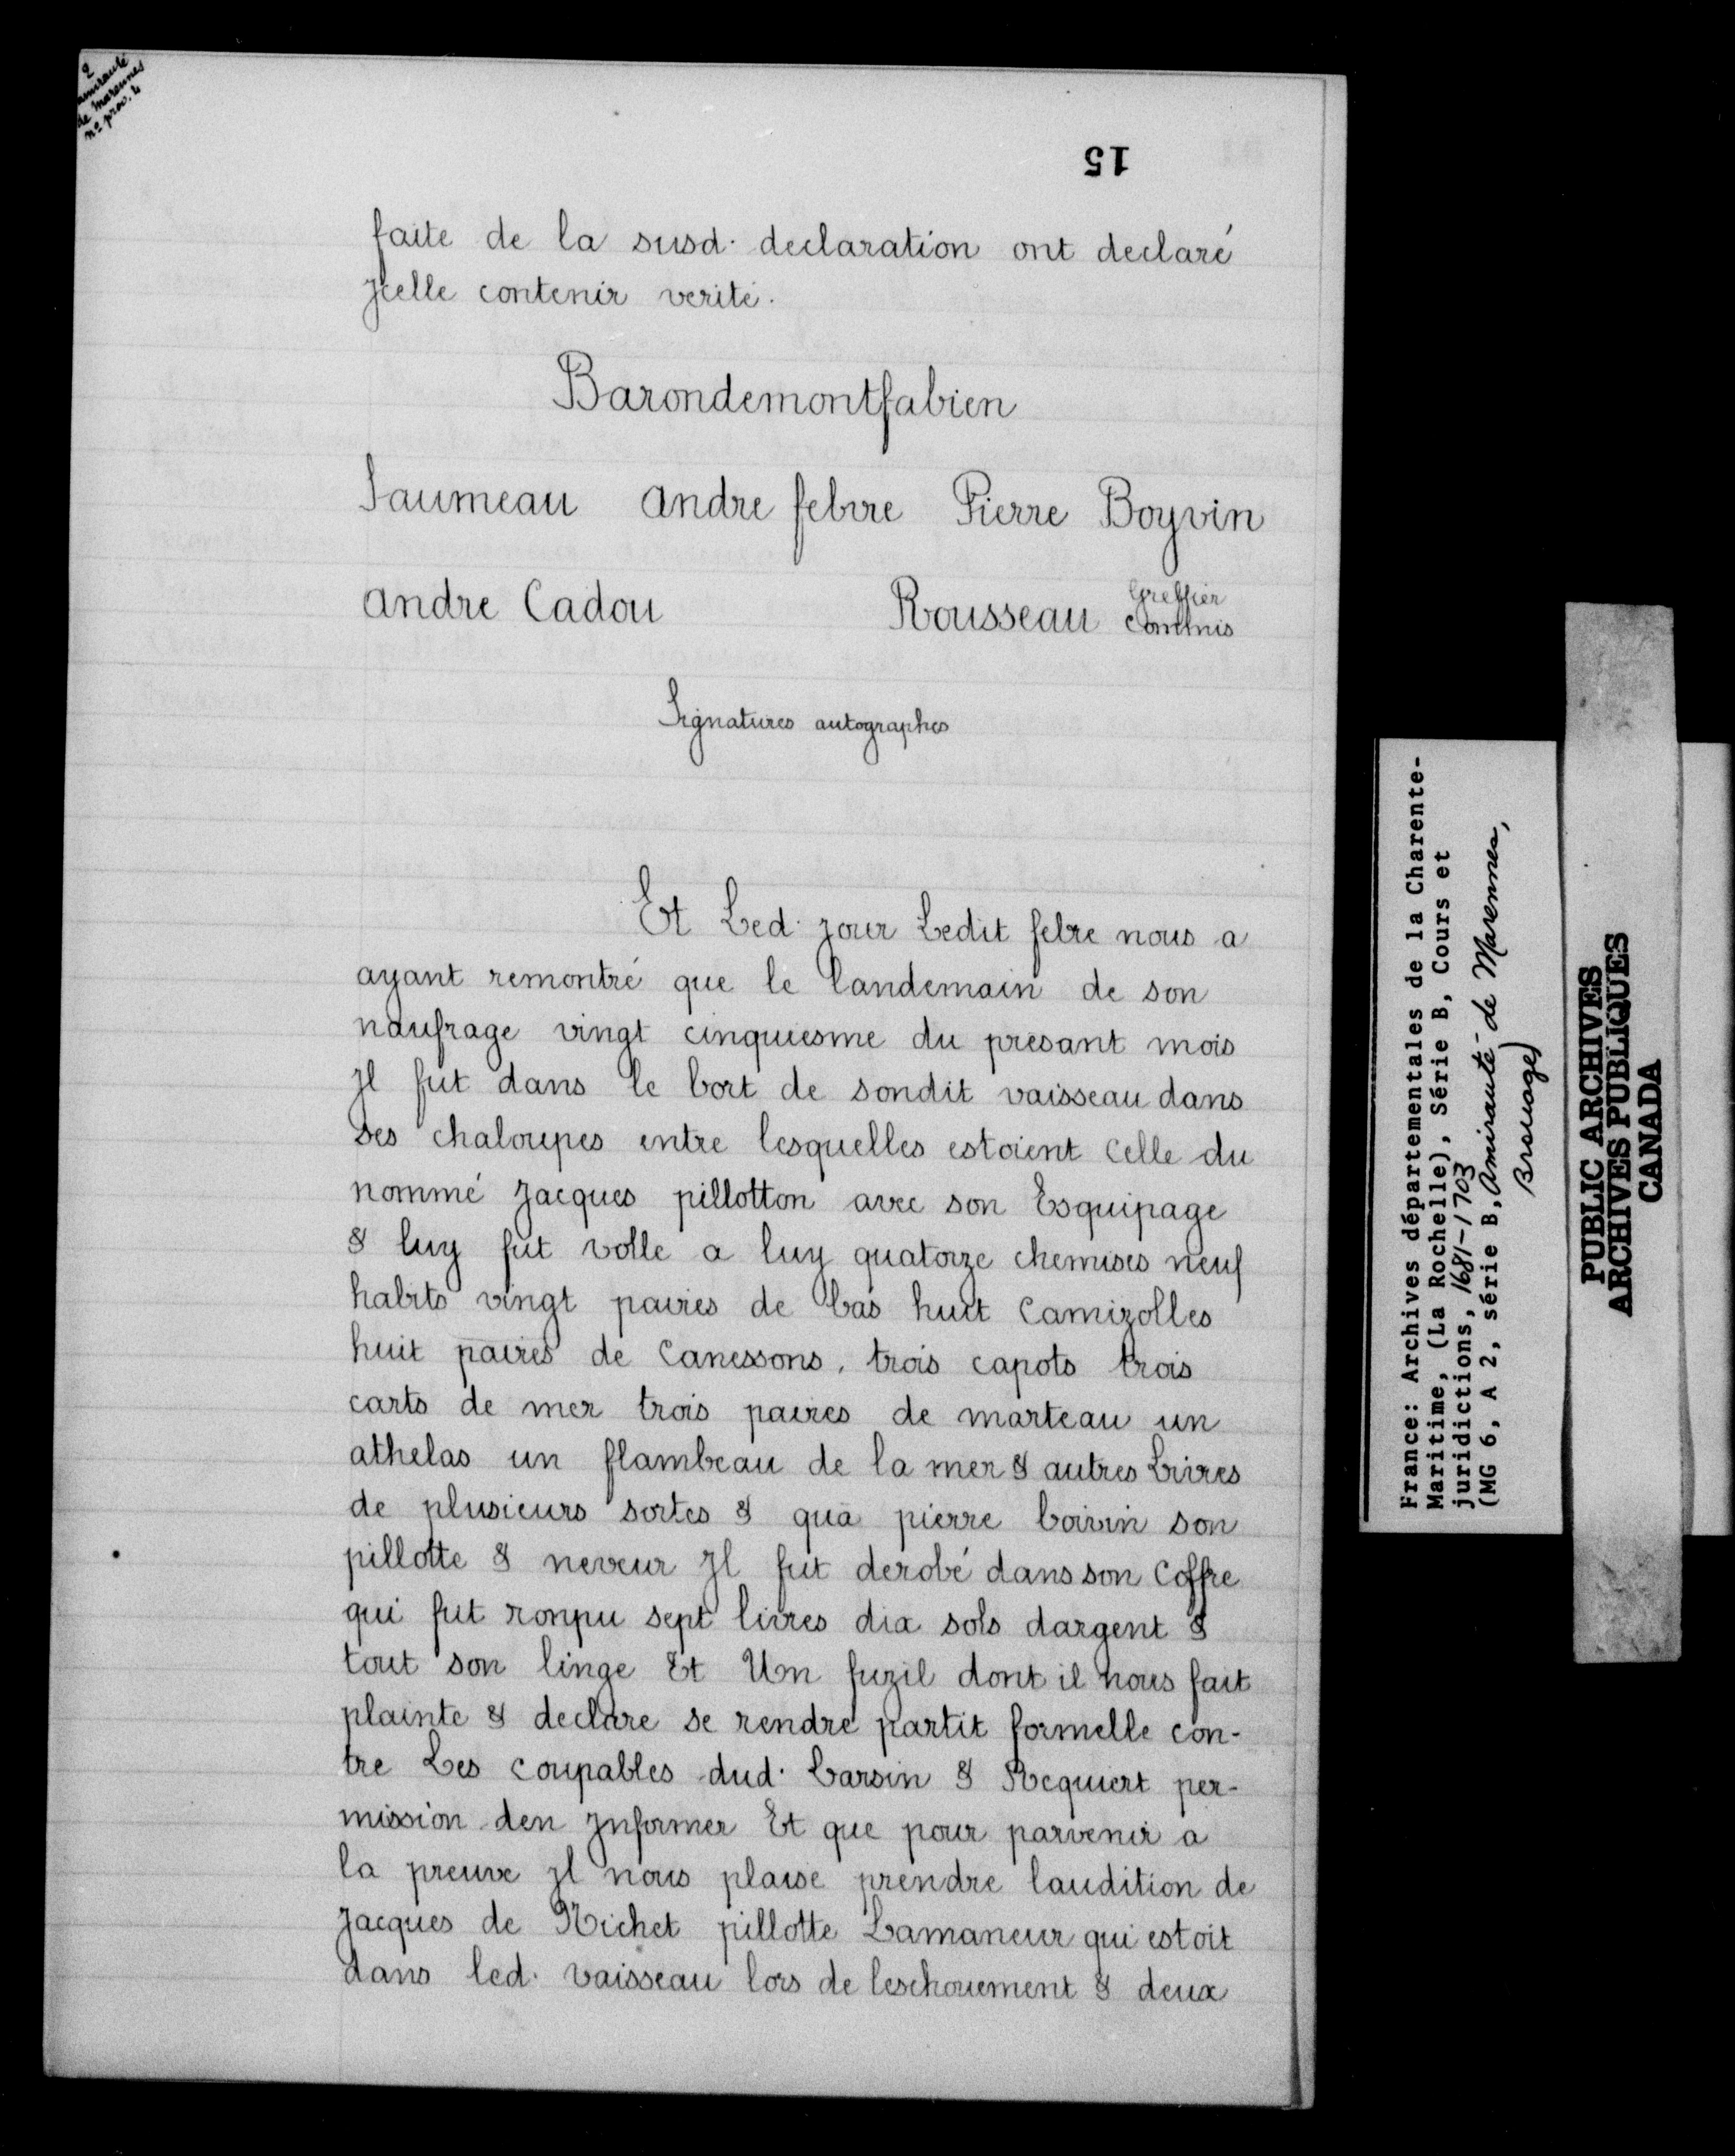 2
amirauté
de Marennes
nº prov. 4
15
faite de la susd. declaration ont declaré
jcelle contenir verité.
Barondemontfabien
Saumeau andre febvre Pierre Boyvin
andre Cadou Rousseau Greffier
Commis
Signatures autographes
Et Led. jour Ledit febre nous a
ayant remontré que le landemain de son
naufrage vingt cinquiesme du presant mois
jl fut dans le bort de sondit vaisseau dans
ses chaloupes entre lesquelles estoient celle du
nommé jacques pillotton avec son Esquipage
& luy fut volle a luy quatorze chemises neuf
habits vingt paires de bas huit camizolles
huit paires de canessons. trois capots trois
carts de mer trois paires de marteau un
athelas un flambeau de la mer & autres Livres
de plusieurs sortes & qua pierre boivin son
pillotte & neveur jl fut derobé dans son coffre
qui fut ronpu sept livres dix sols dargent &
tout son linge Et Un fuzil dont il nous fait
plainte & declare se rendre partit formelle con-
tre Les coupables dud. Larsin & Requiert per-
mission den jnformer Et que pour parvenir a
la preuve jl nous plaise prendre laudition de
jacques de Richet pillotte Lamaneur qui estoit
dans led. vaisseau lors de leschouement & deux
France: Archives départementales de la Charente-
Maritime, (La Rochelle), Série B, Cours et
juridictions, 1681-1703
(MG 6, A 2, série B, Amirauté de Marennes,
Brouage)
PUBLIC ARCHIVES
ARCHIVES PUBLIQUES
CANADA